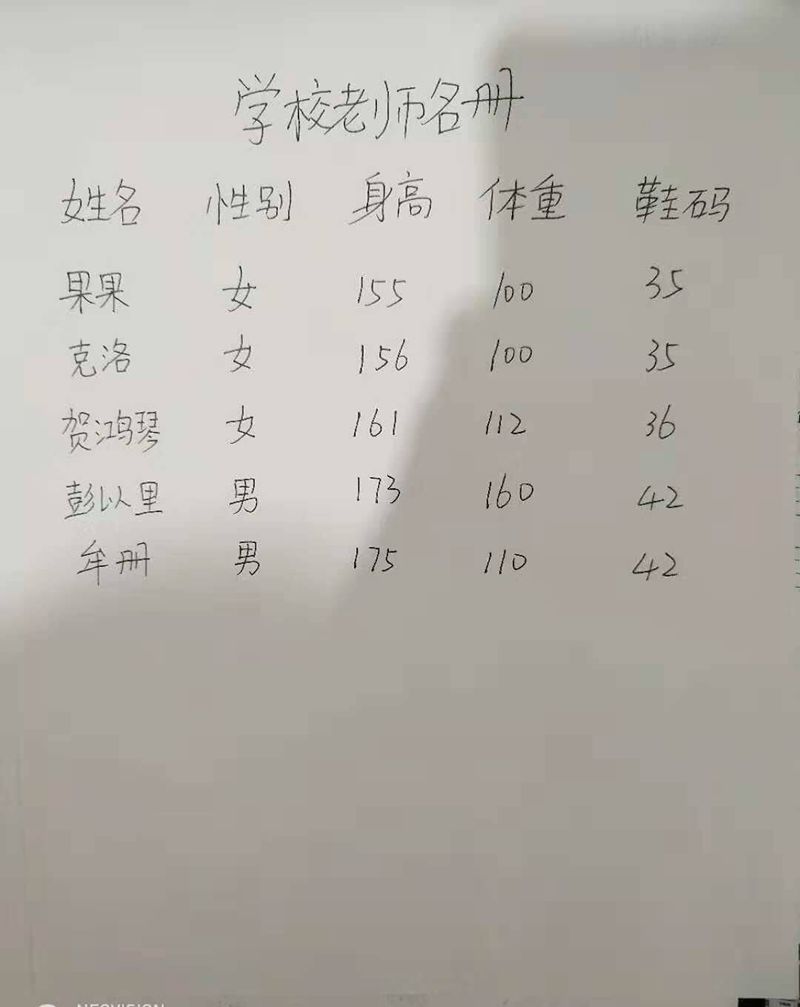 学校老师名册
姓名 性别 身高 体重 鞋码
果果 女 155 100 35
克洛 女 156 100 35
贺鸿琴 女 161 112 36
彭以里 男 173 160 42
牟册 男 175 110 42